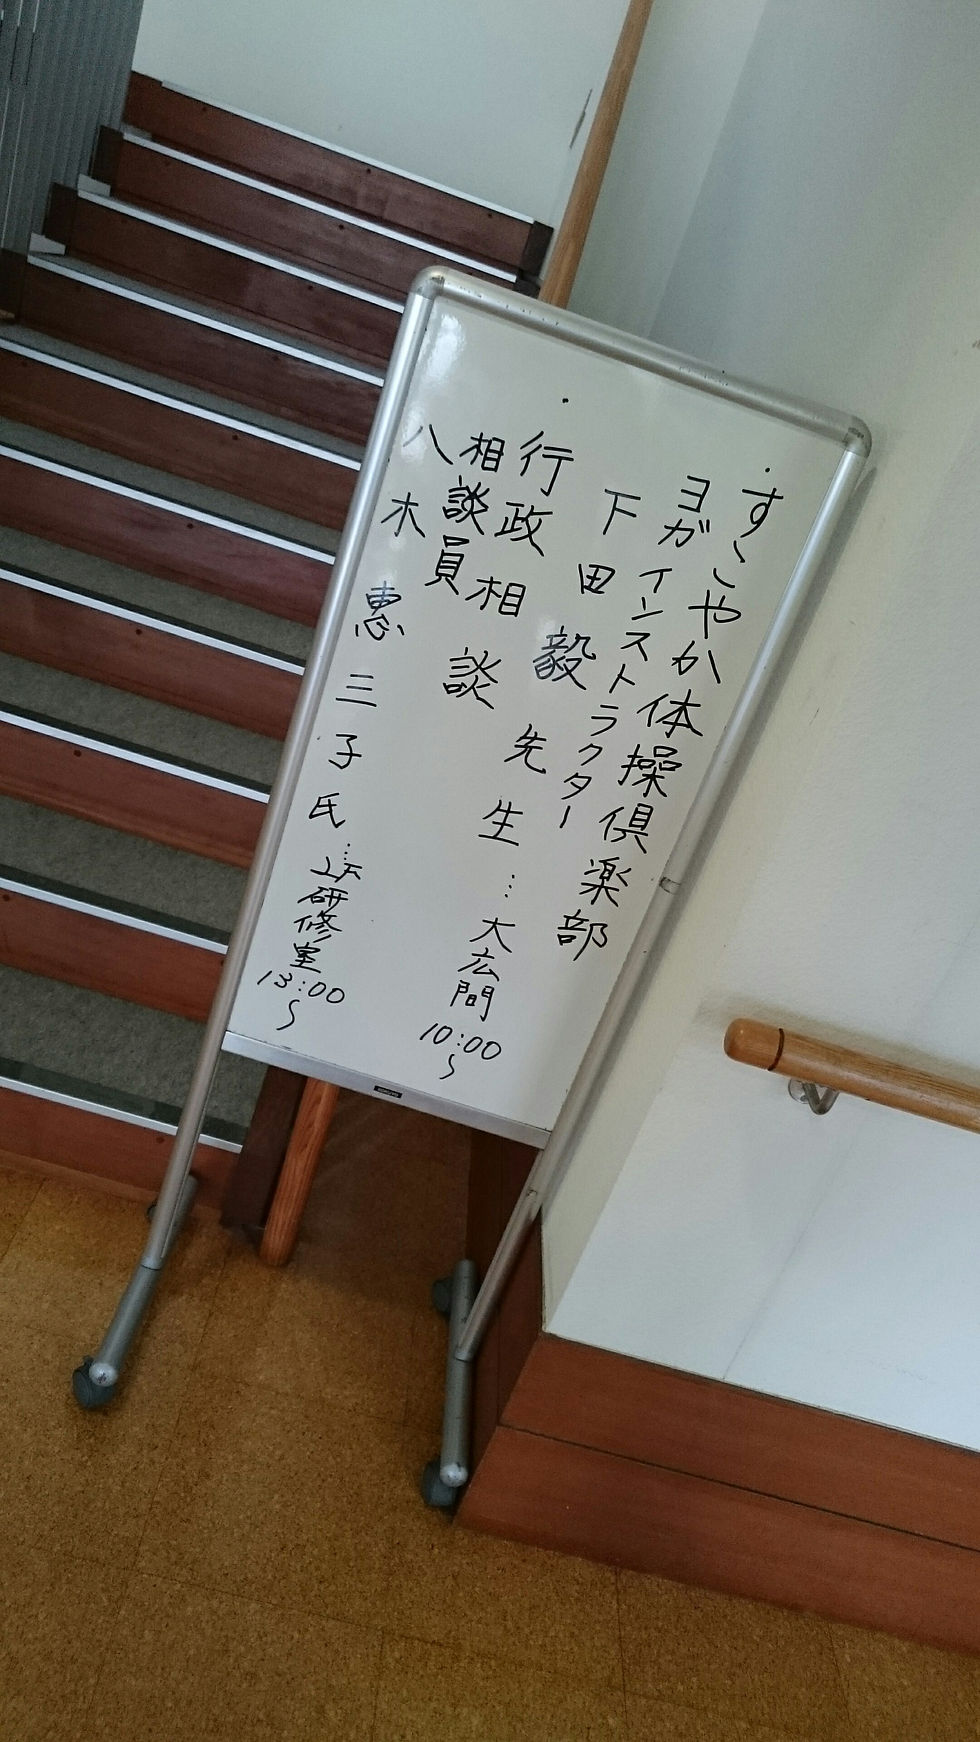 ・すこやか体操倶楽部
ヨガインストラクター
下田 毅 先生…大広間 10:00〜
・行政相談
相談員
八木 恵三子氏…2F研修室 13:00〜